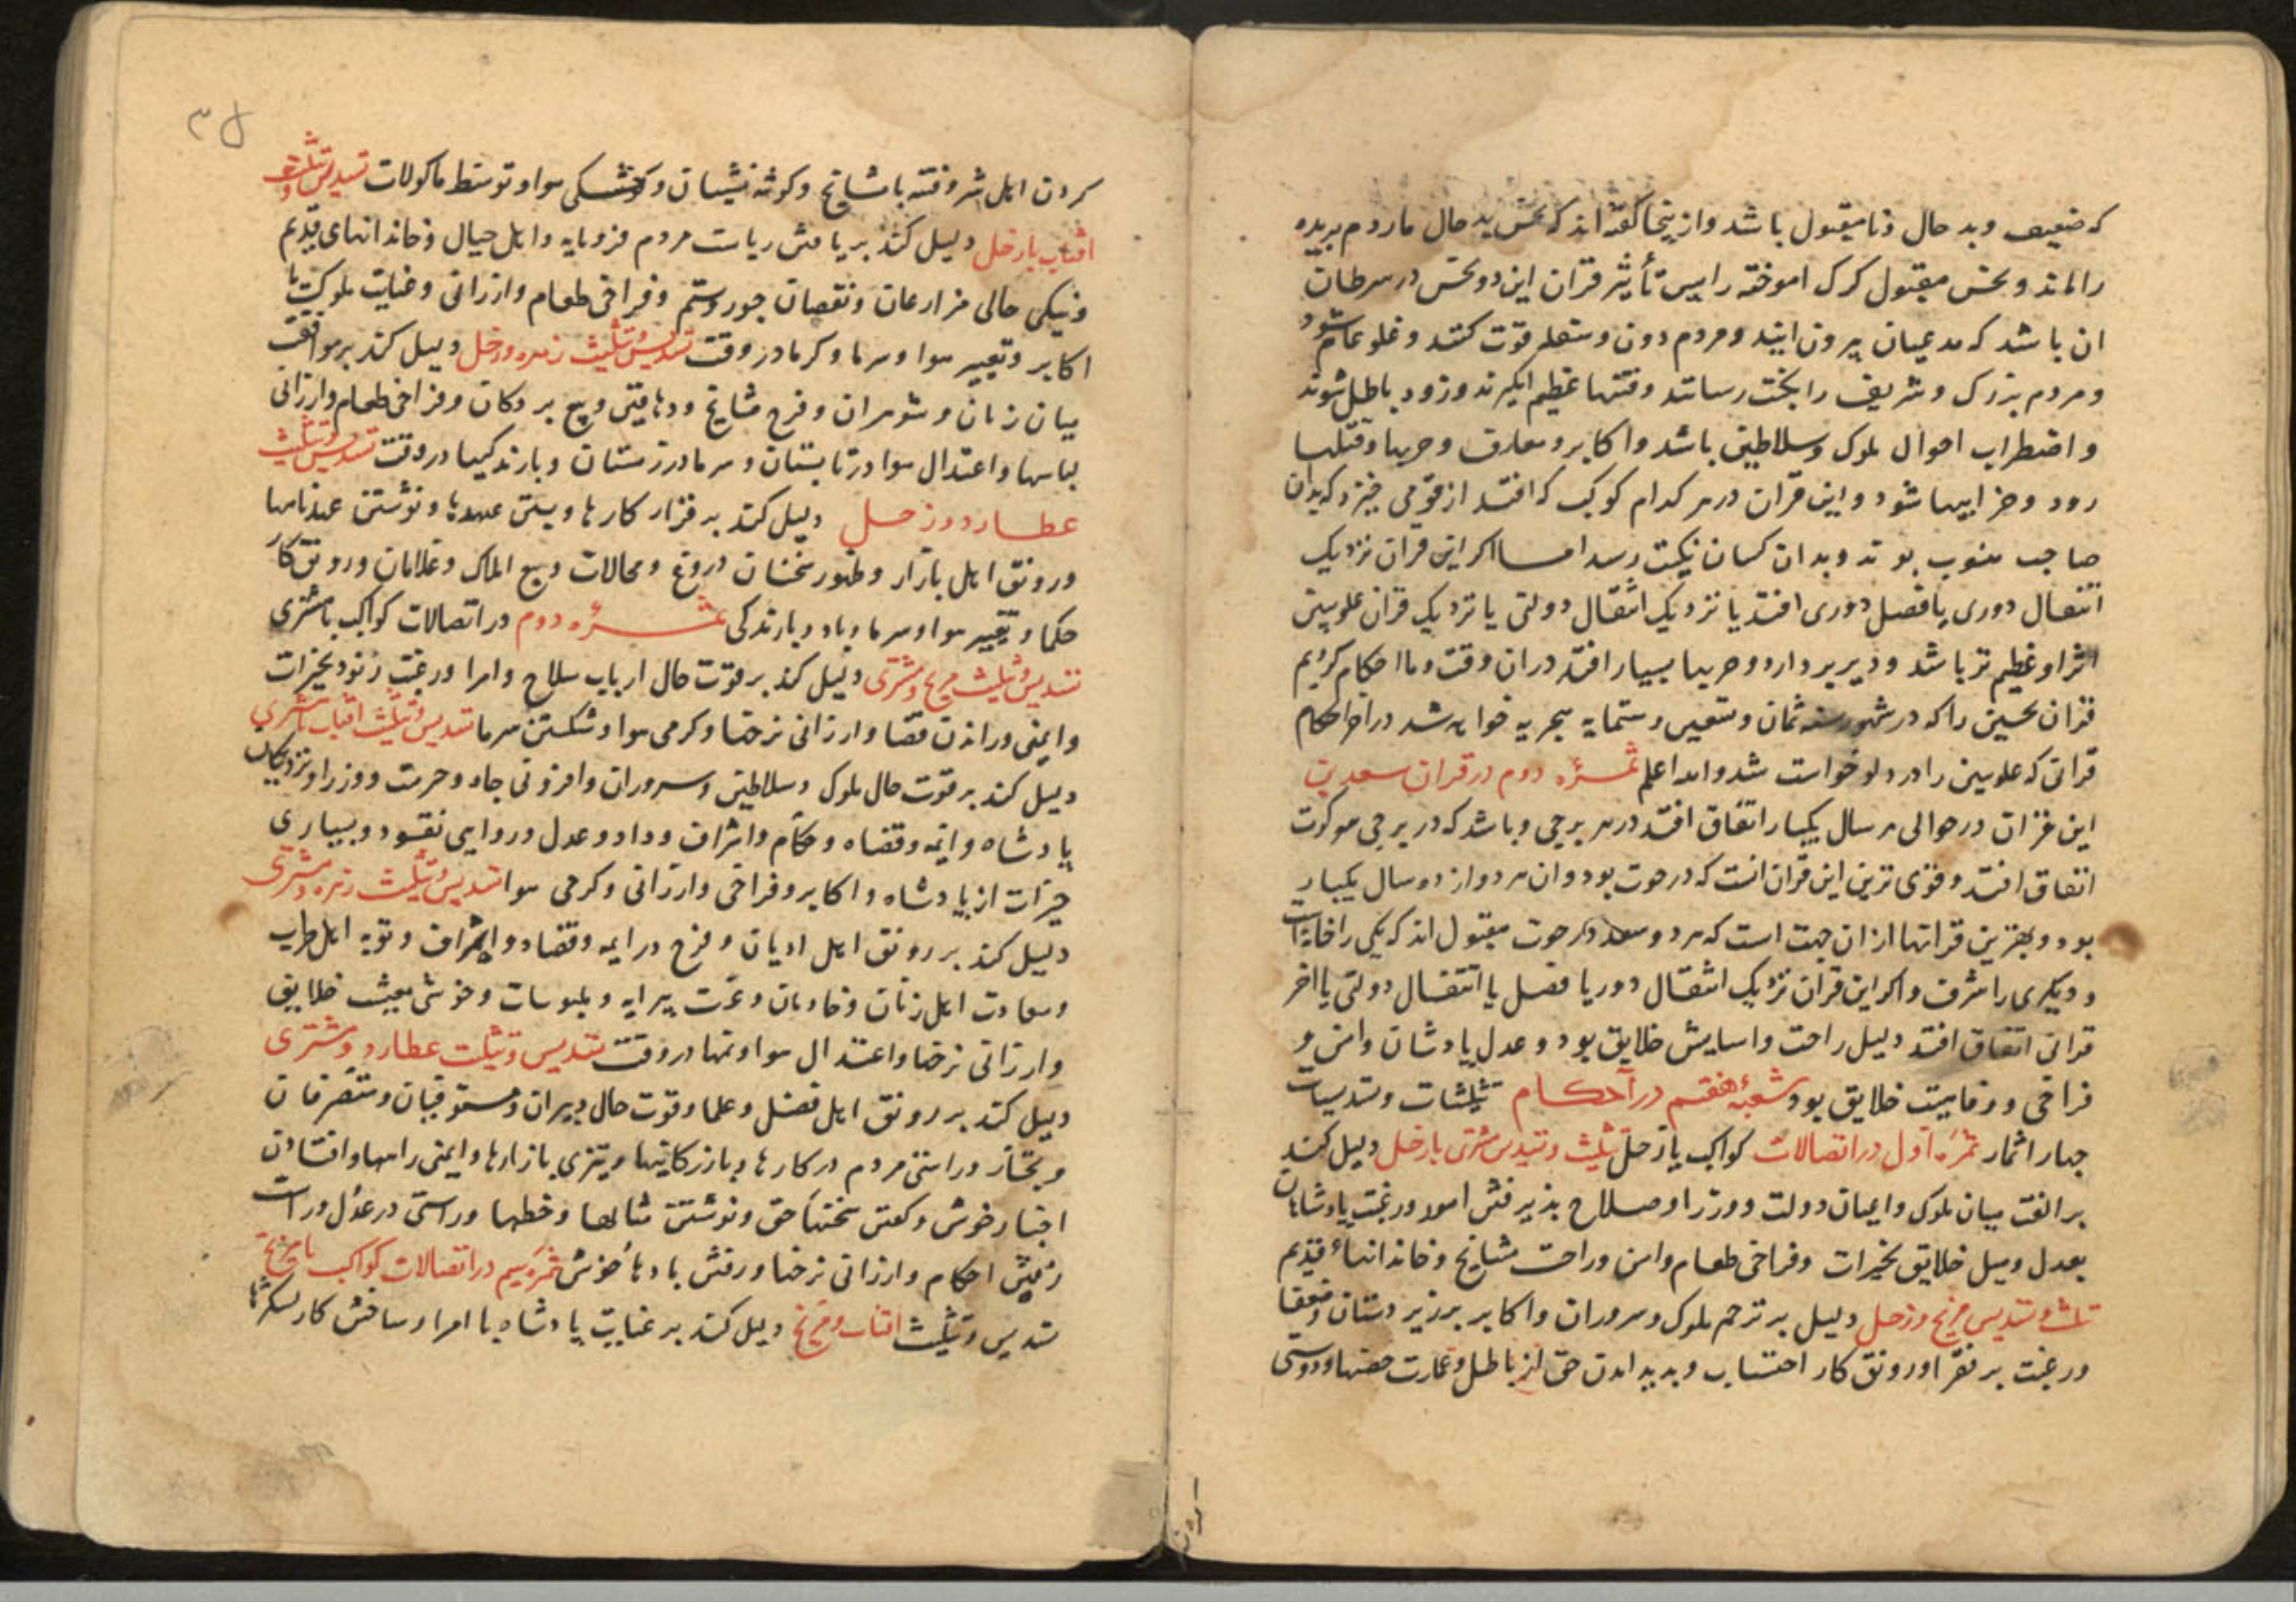 که ضعیف و بد حال و نامقبول باشد و ازینجا گفته اند که نحس بد حال مار دم بریده
را ماند و نحس مقبول کرک اموخته را پس تأثیر قران این دو نحس در سرطان
ان باشد که مدعیان بیرون ایند و مردم دون و سفله قوت کنند و غلو عام شود
و مردم بزرک و شریف را نکبت رسانند و فتنها عظیم انکیزند و زود باطل شوند
و اضطراب احوال ملوک و سلاطین باشد و اکابر و معارف و حربها و قتلها
رود و خرابیها شود و این قران در هر کدام کوکب که افتد از قومی خیزد که بدان
صاحب منسوب بوند و بدان کسان نکبت رسد اما اکر این قران نزدیک
انتقال دوری یا فصل دوری افتد یا نزدیک انتقال دولتی یا نزدیک قران علویین
اثر او عظیم تر باشد و دیر بردارد و حربها بسیار افتد دران وقت و ما احکام کردیم
قران نحسین را که در شهور سنه ثمان و تسعین و ستمایه هجریه خواهد شد در اخر احکام
قرانی که علویین را در دلو خواست شد و الله اعلم ثمره دوم در قران سعدین
این قران در حوالی هر سال یکبار اتفاق افتد در هر برجی و باشد که در برجی دو کرت
اتفاق افتد و قوی ترین این قران انست که در حوت بود و ان هر دوازده سال یکبار
بود و بهترین قرانها ازان جهت است که هر دو سعد در حوت مقبول اند که یکی را خانه است
و دیکری را شرف و اکر این قران نزدیک انتقال دور یا فصل یا انتقال دولتی یا اخر
قرانی اتفاق افتد دلیل راحت و اسایش خلایق بود و عدل پادشان و امن و
فراخی و رفاهیت خلایق بود شعبهٔ هفتم در احکام تثلیثات و تسدیسات
چهار اثمار ثمره اول در اتصالات کواکب با زحل تثلیث و تسدیس مشتری با زحل دلیل کند
بر الفت میان ملوک و اعیان دولت و وزرا و صلاح پذیرفتن امور و رغبت پادشاهان
بعدل و میل خلایق بخیرات و فراخی طعام و امن و راحت مشایخ و خاندانهاء قدیم
تثلیث و تسدیس مریخ و زحل دلیل بر ترحم ملوک و سروران و اکابر بر زیر دستان و ضعفا
و رغبت بر فقرا و رونق کار احتساب و پدید امدن حق از باطل و عمارت حصنها و دوستی
کردن اهل شر و فتنه با مشایخ و کوشه نشینان و خشکی هوا و توسط ماکولات تسدیس و تثلیث
افتاب با زحل دلیل کند بر یافتن ریاست مردم فرومایه و اهل جبال و خاندانهای قدیم
و نیکی حالی مزارعان و نقصان جور و ستم و فراخی طعام و ارزانی و عنایت ملوک با
اکابر و تغییر هوا و سرما و کرما در وقت تسدیس و تثلیث زهره و زحل دلیل کند بر موافقت
میان زنان و شوهران و فرح مشایخ و دهاقین و بیع بردکان و فراخی طعام و ارزانی
لباسها و اعتدال هوا در تابستان و سرما در زمستان و بارندکیها در وقت تسدیس و تثلیث
عطارد و زحل دلیل کند بر قرار کارها و بستن عهدها و نوشتن عهدنامها
و رونق اهل بازار و ظهور سخنان دروغ و محالات و بیع املاک و غلامان و رونق کار
حکما و تغییر هوا و سرما و باد و بارندکی ثمره دوم در اتصالات کواکب با مشتری
تسدیس و تثلیث مریخ و مشتری دلیل کند بر قوت حال ارباب سلاح و امرا و رغبت جنود بخیرات
و ایمنی و راندن قضا و ارزانی نرخها و کرمی هوا و شکستن سرما تسدیس و تثلیث افتاب با مشتری
دلیل کند بر قوت حال ملوک و سلاطین و سروران و افزونی جاه و حرمت و وزرا و نزدیکان
پادشاه و ایمه و قضاه و حکام و اشراف و داد و عدل و روایی نقود و بسیاری
خیرات از پادشاه و اکابر و فراخی و ارزانی و کرمی هوا تسدیس و تثلیث زهره و مشتری
دلیل کند بر رونق اهل ادیان و فرح در ایمه و قضاه و اشراف و توبه اهل طرب
و سعادت اهل زنان و خادمان و عزت پیرایه و ملبوسات و خوشی معیشت خلایق
و ارزانی نرخها و اعتدال هوا و نمها در وقت تسدیس و تثلیث عطارد و مشتری
دلیل کند بر رونق اهل فضل و علما و قوت حال دبیران و مستوفیان و متصرفان
و تجار و راستی مردم در کارها و بازرکانیها و تیزی بازارها و ایمنی راهها و افتادن
اخبار خوش و کفتن سخنها حق و نوشتن مثالها و خطها و راستی در عدل و راست
رفتن احکام و ارزانی نرخها و رفتن بادها خوش ثمره سیم در اتصالات کواکب با مریخ
تسدیس و تثلیث افتاب و مریخ دلیل کند بر عنایت پادشاه با امرا و ساختن کار لشکرها